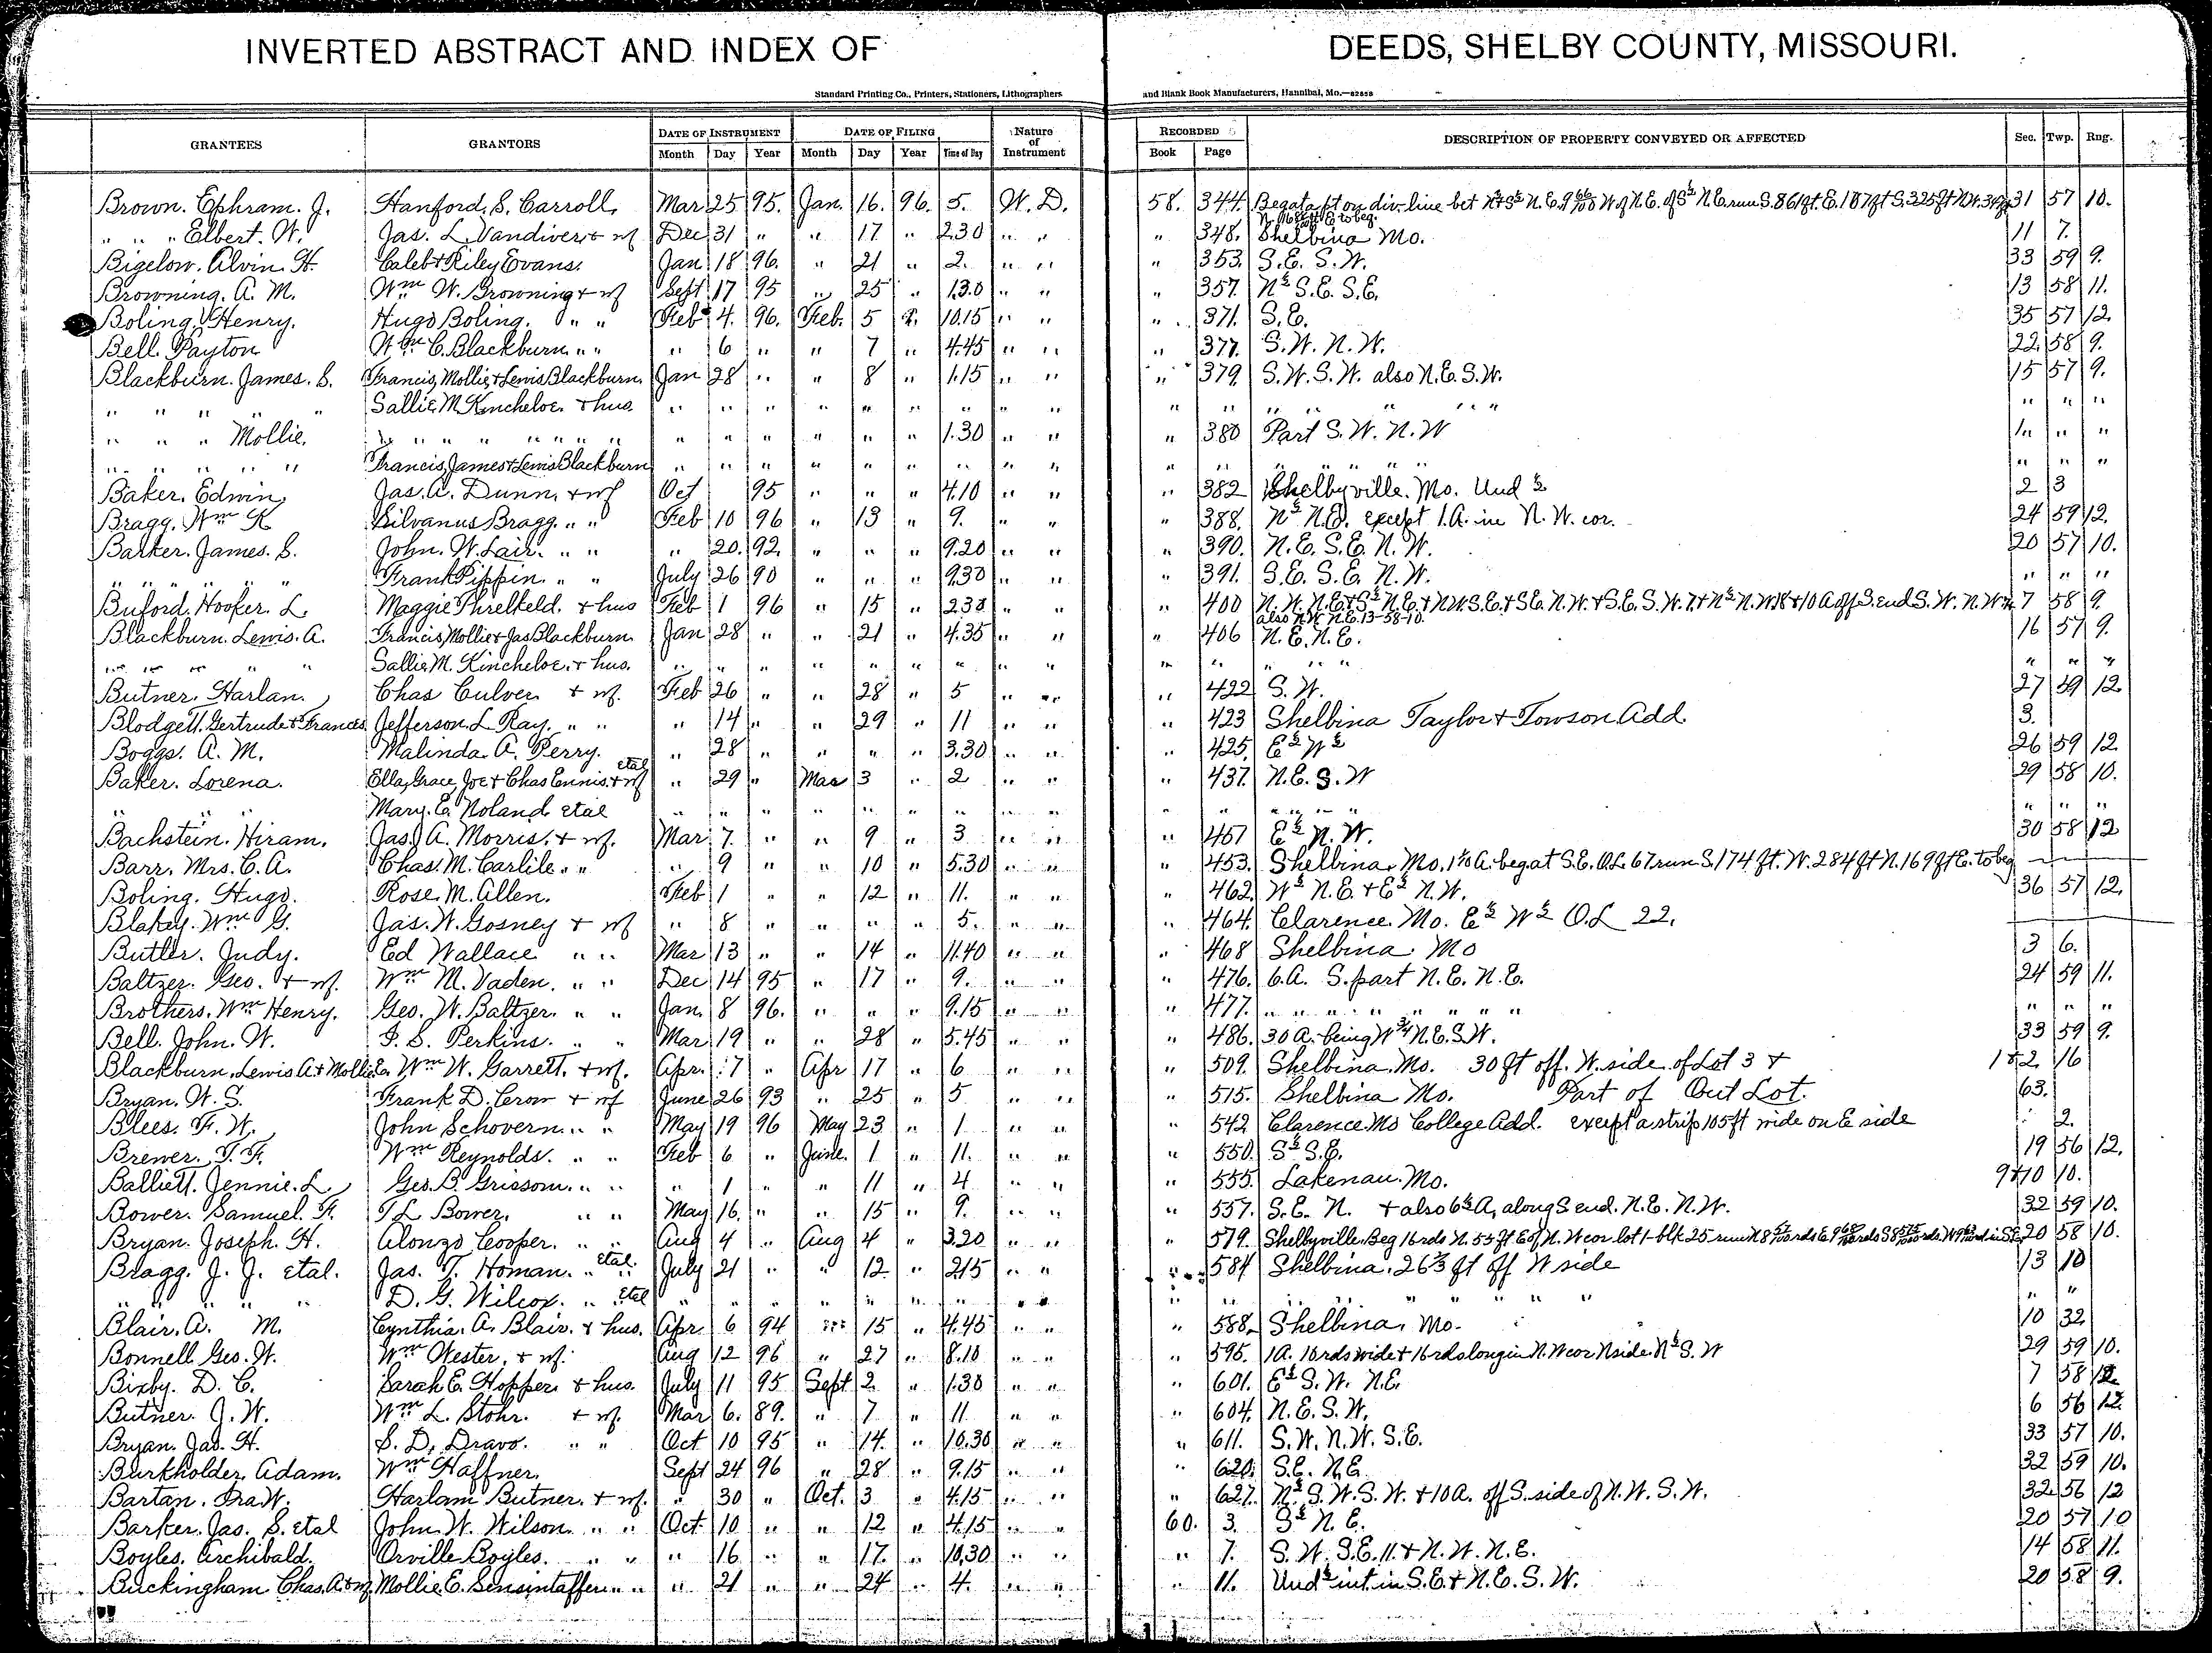 INVERTED ABSTRACT AND INDEX OF DEEDS, SHELBY COUNTY, MISSOURI.
Standard Printing Co., Printers, Stationers, Lithographers and Blank Book Manufacturers, Hannibal, Mo.
GRANTEES GRANTORS DATE OF INSTRUMENT DATE OF FILING Nature of Instrument RECORDED DESCRIPTION OF PROPERTY CONVEYED OR AFFECTED Sec. Twp. Rng.
Month Day Year Month Day Year Time of Day Book Page
Brown. Ephram. J. Hanford. S. Carroll. Mar 25 95. Jan. 16. 96. 5. W. D. 58. 344. Beg at a pt on div. line bet 31 57 10.
" " " Elbert. W. Jas. L. Vandiver + wf Dec 31 " " 17 " 2.30 " " " 348. Shelbina Mo. 11 7.
Bigelow. Alvin. H. Caleb + Riley Evans. Jan 18 96. " 21 " 2. " " " 353. S.E. S.W. 33 59 9.
Browning. A. M. Wm W. Browning + wf Sept 17 95 " 25 " 1.30 " " " 357. N½ S.E. S.E. 13 58 11.
Boling. Henry. Hugo Boling. " " Feb 4. 96. Feb. 5 10.15 " " " 371. S.E. 35 57 12.
Bell. Payton Wm C. Blackburn " " " 6 " " 7 " 4.45 " " " 377. S.W. N.W. 22. 58 9.
Blackburn. James. S. Francis, Mollie + Lewis Blackburn. Jan 28 " " 8 " 1.15 " " " 379. S.W. S.W. also N.E. S.W. 15 57 9.
" " " " " Sallie M. Kincheloe. + hus. " " " " " " " " " " " " " " " " " "
" " " Mollie. " " " " " " " " " " " " " " 1.30 " " " 380 Part S.W. N.W " "
" " " " " Francis, James + Lewis Blackburn " " " " " " " " " " " " " " " " "
Baker. Edwin. Jas. A. Dunn. + wf Oct 95 " " " 4.10 " " " 382 Shelbyville. Mo. Und ½ 2 3
Bragg. Wm K Silvanus Bragg. " " Feb 10 96 " 13 " 9. " " " 388. N½ N.E. except 1.A. in N.W. cor. 24 59 12.
Barker. James. S. John. W. Lair. " " " 20. 92. " " " 9.20 " " " 390. N.E. S.E. N.W. 20 57 10.
" " " " Frank Pippin. " " July 26 90 " " " 9.30 " " " 391. S.E. S.E. N.W. " " "
Buford. Hooker. L. Maggie Threlkeld. + hus Feb 1 96 " 15 " 2.30 " " " 400 N.W. N.E. + S½ N.E. + N.W. S.E. + S.E. N.W. + S.E. S.W. 7. + N½ N.W. 18 + 10 A off S. end S.W. N.W. 7 58 9.
also N.W. N.E. 13-58-10.
Blackburn. Lewis. A. Francis, Mollie + Jas Blackburn. Jan 28 " " 21 " 4.35 " " " 406 N.E. N.E. 16 57 9.
" " " " " Sallie M. Kincheloe. + hus. " " " " " " " " " " " " " " " " "
Butner. Harlan. Chas Culver + wf. Feb 26 " " 28 " 5 " " " 422 S.W. 27 59 12.
Blodgett. Gertrude + Frances. Jefferson. L. Ray. " " " 14 " " 29 " 11 " " " 423 Shelbina Taylor + Towson Add. 3.
Boggs. A. M. Malinda. A. Perry. " 28 " " " " 3.30 " " " 425. E½ W½ 26 59 12
Baker. Lorena. Ella, Grace, Joe + Chas Ennis. + wf etal " 29 " Mar 3 " 2 " " " 437. N.E. S.W 29 58 10.
" " " Mary. E. Noland etal " " " " " " " " " " " " " " " " "
Bachstein. Hiram. Jas. A. Morris. + wf. Mar 7. " " 9 " 3 " " " 451 E½ N.W. 30 58 12
Barr. Mrs. C. A. Chas. M. Carlile. " " " 9 " " 10 " 5.30 " " " 453. Shelbina. Mo. beg. at S.E. O.L 67 run S. 174 ft. W. 284 ft N. 169 ft E. to beg
Boling. Hugo. Rose. M. Allen. Feb 1 " " 12 " 11. " " " 462. W½ N.E. + E½ N.W. 36 57 12.
Blakey. Wm G. Jas. W. Gosney + wf " 8 " " " " 5. " " " 464. Clarence. Mo. E½ W½ O.L 22.
Butler. Judy. Ed Wallace " " Mar 13 " " 14 " 11.40 " " " 468 Shelbina Mo 3 6.
Baltzer. Geo. + wf. Wm M. Vaden. " " Dec 14 95 " 17 " 9. " " " 476. 6.A. S. part N.E. N.E. 24 59 11.
Brothers. Wm Henry. Geo. W. Baltzer. " " Jan. 8 96. " " " 9.15 " " " 477. " " " " " " " " "
Bell. John. W. S. Perkins. " " Mar 19 " " 28 " 5.45 " " " 486. 30 A. being W¾ N.E. S.W. 33 59 9.
Blackburn. Lewis A. + Mollie E. Wm W. Garrett. + wf. Apr. 7 " Apr 17 " 6 " " " 509. Shelbina. Mo. 30 ft off. W. side of Lot 3 + 1 + 2. 16
Bryan. W. S. Frank D. Crow + wf June 26 93 " 25 " 5 " " " 515. Shelbina Mo. Part of Out Lot. 63.
Blees. F. W. John Schovern. " " May 19 96 May 23 " 1 " " " 542 Clarence. Mo College Add. except a strip 105 ft wide on E side 2.
Brewer. T. F. Wm Reynolds. " " Feb 6 " June. 1 " 11. " " " 550. S½ S.E. 19 56 12.
Balliett. Jennie. L. Geo. B. Grissom. " " " 1 " " 11 " 4 " " " 555. Lakenan. Mo. 9+10 10.
Bower. Samuel. F. T L Bower. " " May 16. " " 15 " 9. " " " 557. S.E. N. + also 6½ A, along S end. N.E. N.W. 32 59 10.
Bryan. Joseph. H. Alonzo Cooper. " " Aug 4 " Aug 4 " 3.20 " " " 579. Shelbyville. Beg 16 rds N. 55 ft E of N.W cor lot 1 - blk 25 20 58 10.
Bragg. J. J. etal. Jas. T. Homan. " etal. July 21 " " 12 " 2.15 " " " 584 Shelbina. 26⅔ ft off W side 13 10
" " " " D. G. Wilcox. " etal " " " " " " " " " " " " " " " " "
Blair. A. M. Cynthia. A. Blair. + hus. Apr. 6 94 " 15 " 4.45 " " " 588. Shelbina, Mo. 10 32.
Bonnell Geo. W. Wm Wester. + wf. Aug 12 96 " 27 " 8.10 " " " 595. 1A. 10 rds wide + 16 rds long in N.W cor N side. N½ S.W 29 59 10.
Bixby. D. C. Sarah E. Hopper. + hus. July 11 95 Sept 2. " 1.30 " " " 601. E½ S.W. N.E. 7 58 12.
Butner. J. W. Wm L. Stohr. + wf. Mar 6. 89. " 7 " 11 " " " 604. N.E. S.W. 6 56 12.
Bryan. Jas. H. S. D. Dravo. " " Oct 10 95 " 14. " 10.30 " " " 611. S.W. N.W. S.E. 33 57 10.
Burkholder. Adam. Wm Haffner. Sept 24 96 " 28 " 9.15 " " " 620. S.E. N.E. 32 59 10.
Bartan. Ira W. Harlam Butner. + wf. " 30 " Oct. 3 " 4.15 " " " 627. N½ S.W. S.W. + 10 A. off S. side of N.W. S.W. 32 56 12
Barker. Jas. S. etal John. W. Wilson. " " Oct. 10 " " 12 " 4.15 " " 60. 3. S½ N.E. 20 57 10
Boyles. Archibald. Orville Boyles. " " " 16 " " 17. " 10.30 " " " 7. S.W. S.E. 11. + N.W. N.E. 14 58 11.
Buckingham Chas. A + wf. Mollie. E. Sensintaffer " " " 21 " " 24 " 4. " " " 11. Und ½ int. in S.E. + N.E. S.W. 20 58 9.